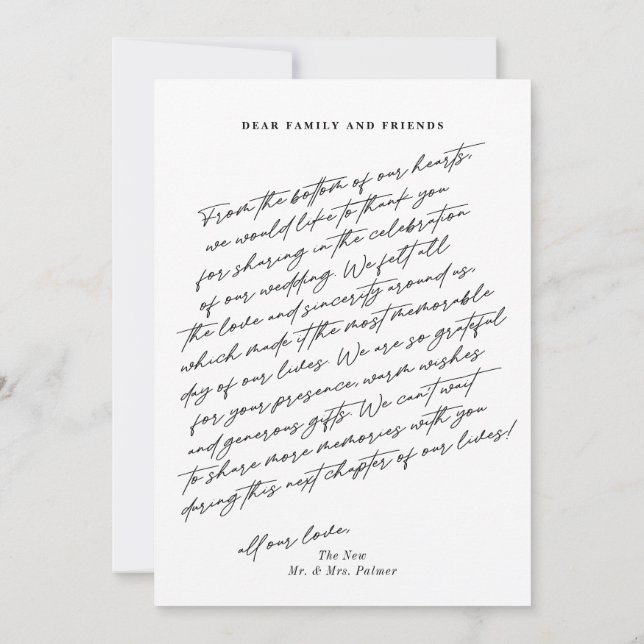 DEAR FAMILY AND FRIENDS
From the bottom of our hearts,
we would like to thank you
for sharing in the celebration
of our wedding. We felt all
the love and sincerity around us,
which made it the most memorable
day of our lives. We are so grateful
for your presence, warm wishes
and generous gifts. We can't wait
to share more memories with you
during this next chapter of our lives!
all our love,
The New
Mr. & Mrs. Palmer